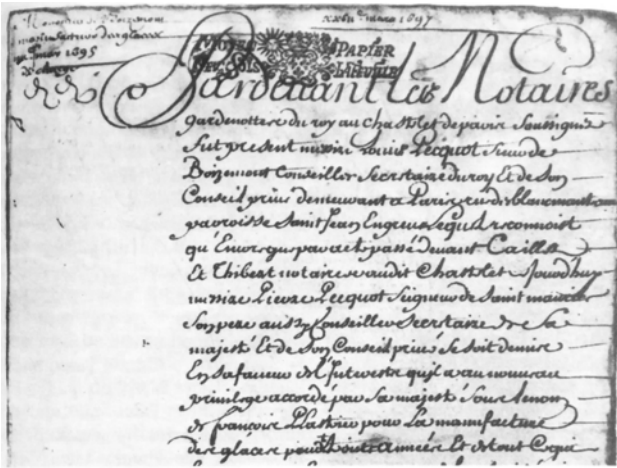 xxvii mars 1697
manufacture des glaces
mars 1695
MOYEN PAPIER
Pardevant les Notaires
gardenottes du roy au Chastelet de paris soussignés
fut present messire Louis Pecquot sieur de
Boizemont Conseiller Secretaire du roy Et de Son
Conseil privé demeurant a Paris rue des blancmanteaux
parroisse Saint Jean En greve Lequel recconnoist
qu'Encorque par acte passé devant Caillet
Et Thibert notaires audit Chastelet Jourdhuy
messire Pierre Pecquot Seigneur de Saint maurice
Son pere aussy Conseiller Secretaire de Sa
majesté Et de Son Conseil privé Se Soit demise
En Sa faveur de l'interest qu'il a au nouveau
privilege accordé par Sa majesté Sous le nom
de françois Plastrier pour La manufacture
des glaces Et de tout Ce qui